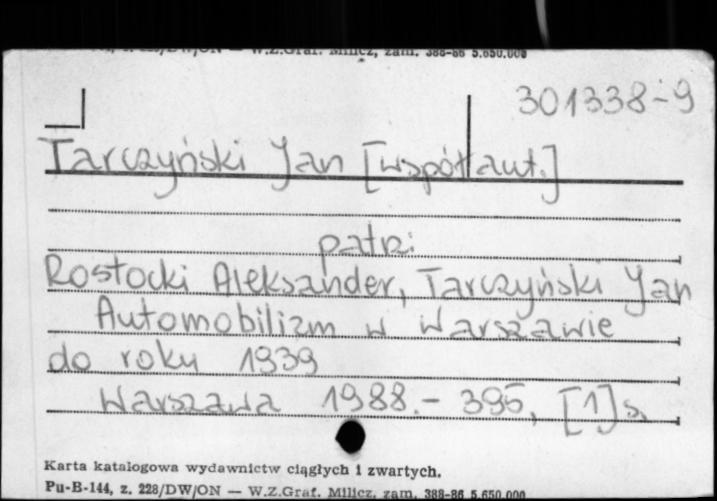 228/DW/ON — W.Z.Graf. Milicz, zam. 388-86 5.650.000
301338-9
Tarczyński Jan [współaut.]
patrz:
Rostocki Aleksander, Tarczyński Jan
Automobilizm w Warszawie
do roku 1939
Warszawa 1988.- 395, [1] s.
Karta katalogowa wydawnictw ciągłych i zwartych.
Pu-B-144, z. 228/DW/ON — W.Z.Graf. Milicz, zam. 388-86 5.650.000